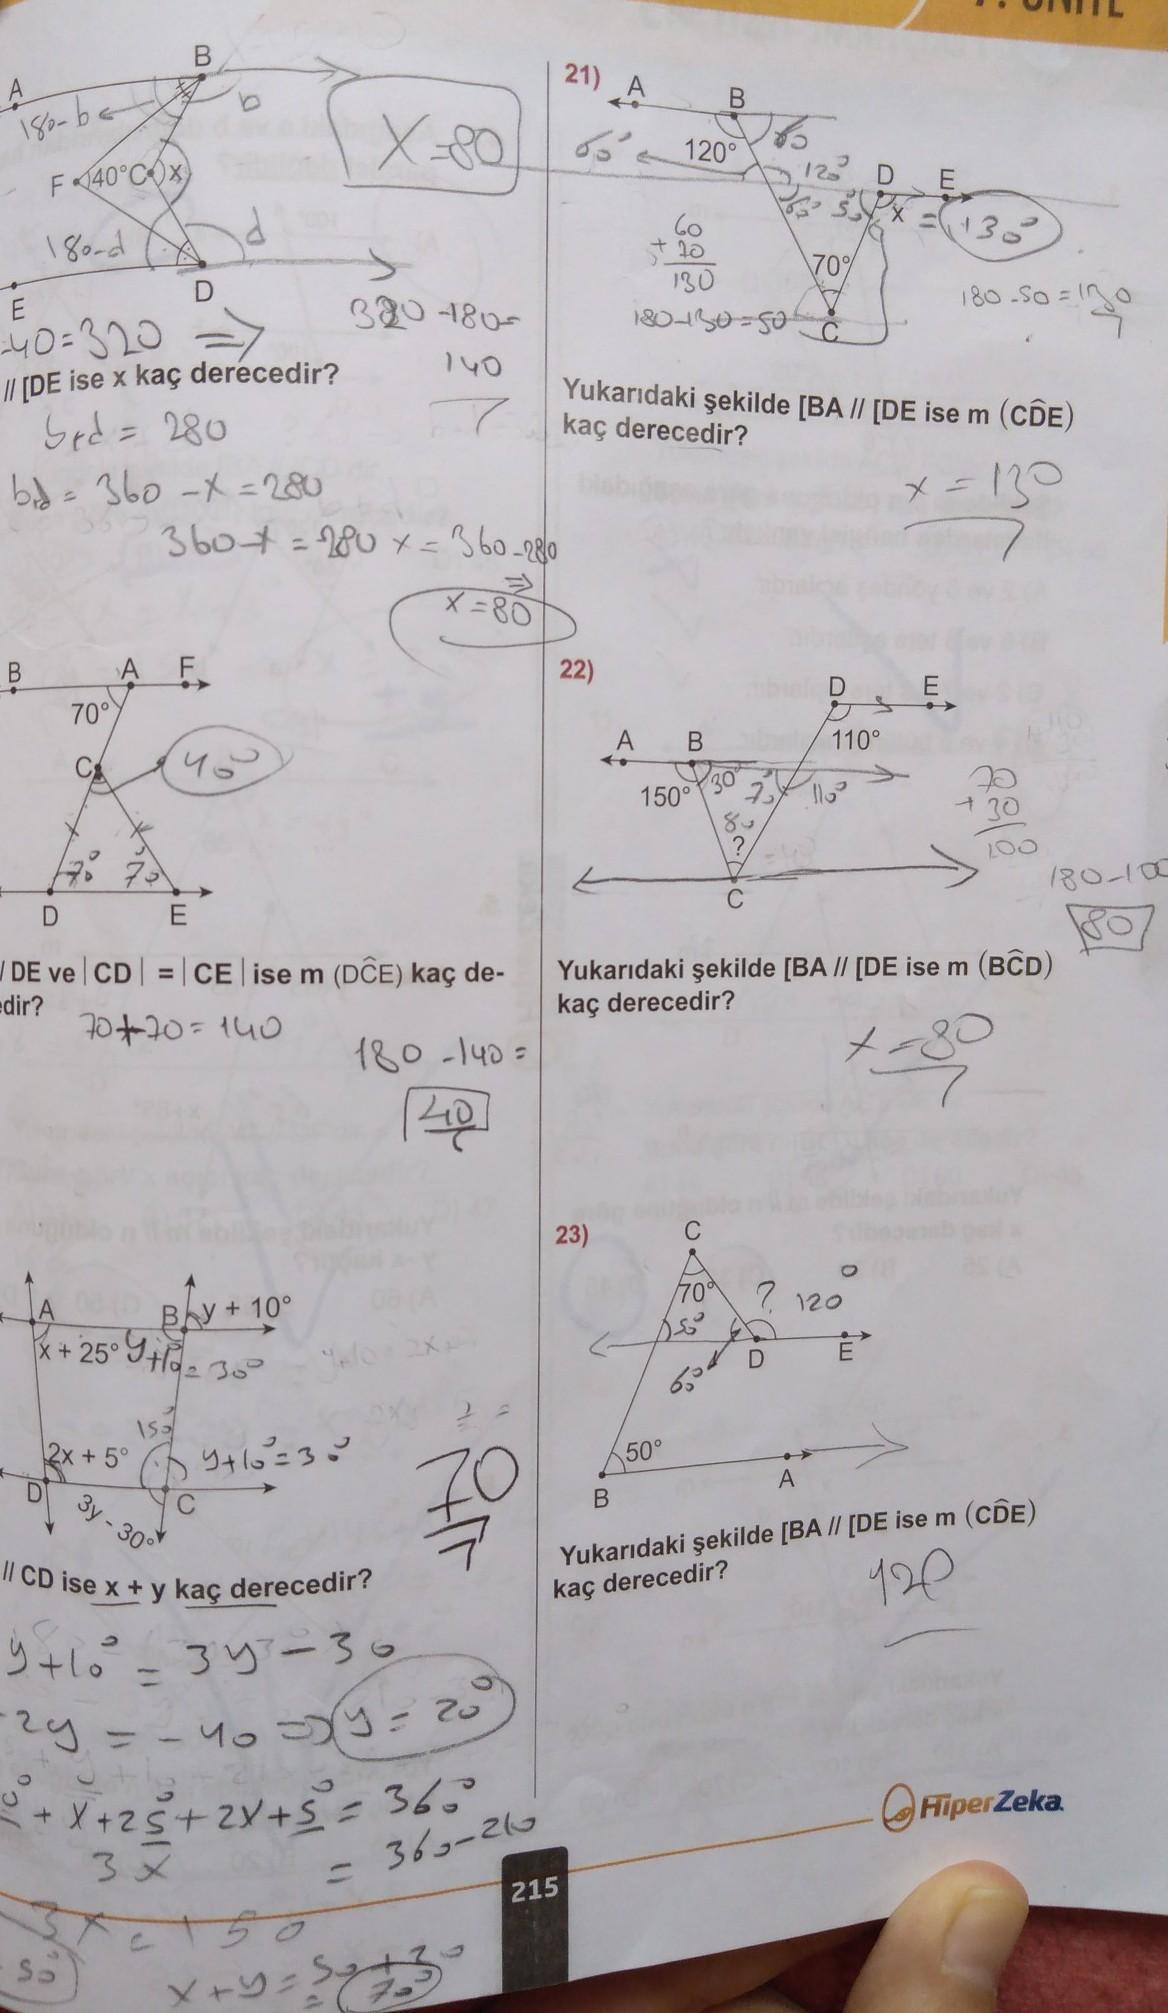 7. ÜNİTE
B
A
180-b
b
X=80
F
40°
C
x
180-d
d
E
D
-40=320
320-180=
140
// [DE ise x kaç derecedir?
b+d = 280
b+d = 360-x=280
360-x=280
x=360-280
x=80
B
A
F
70°
C
40°
70°
70°
D
E
/ DE ve |CD| = |CE| ise m (DĈE) kaç de-
edir?
70+70=140
180-140=
40
A
B
y + 10°
x + 25°
y+10=30°
150°
2x + 5°
y+10°=30°
D
3y - 30°
C
70
// CD ise x + y kaç derecedir?
y+10°=3y-30
-2y=-40
y=20°
+x+25°+2x+5°=360°
3x = 360-210
3x=150
50°
x+y=50+20
=70°
21)
A
B
120°
60
60°
120°
D
E
60°
50
x = 130°
60
+70
130
70°
180-130=50
C
180-50=130
Yukarıdaki şekilde [BA // [DE ise m (CD̂E)
kaç derecedir?
x=130
22)
D
E
A
B
110°
150°
30°
70°
110°
80
?
C
70
+30
100
180-100
80
Yukarıdaki şekilde [BA // [DE ise m (BĈD)
kaç derecedir?
x=80
23)
C
70°
?
120°
50°
D
E
60°
50°
B
A
Yukarıdaki şekilde [BA // [DE ise m (CD̂E)
kaç derecedir?
120
HiperZeka
215